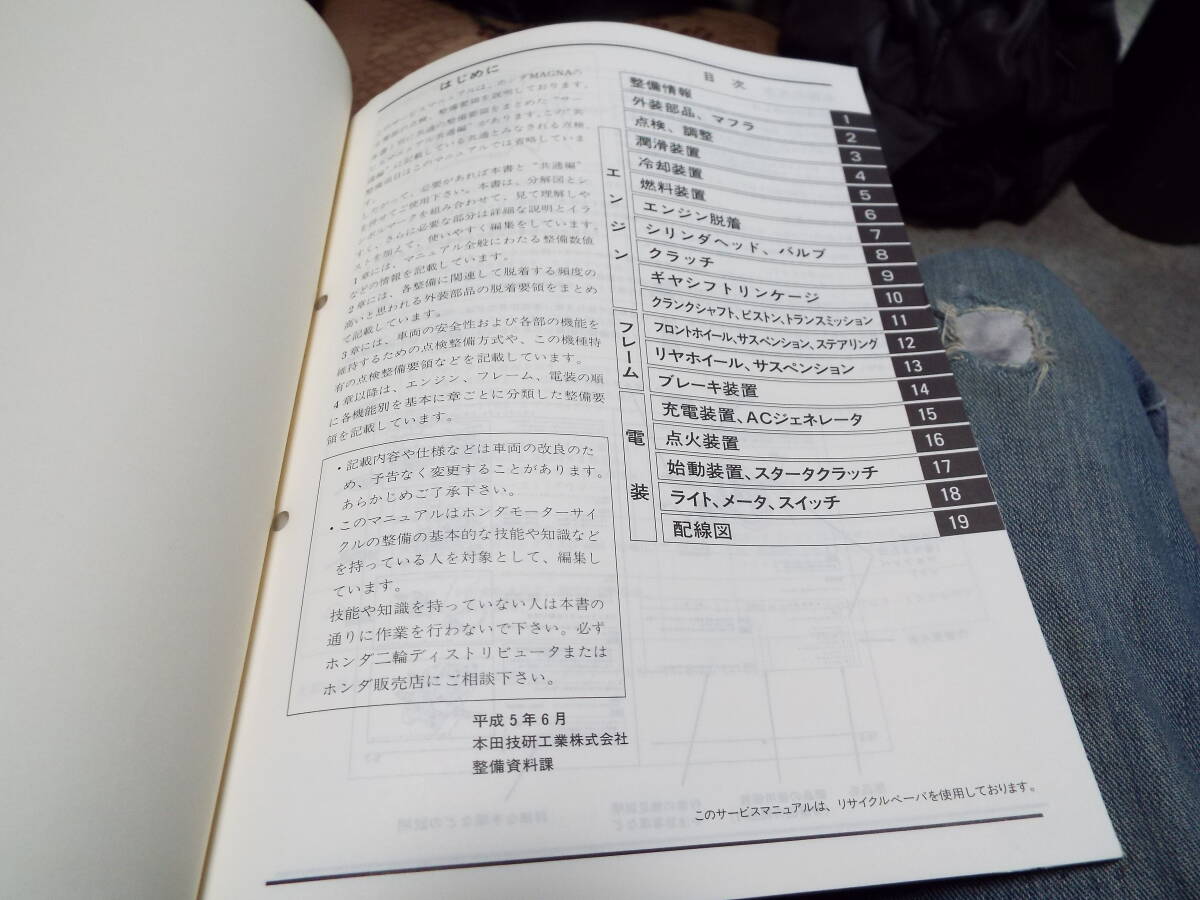 はじめに
このサービスマニュアルは、ホンダMAGNAの
車両の点検、整備要領を説明しております。
ただし、共通の整備要領をまとめた“サー
ビスマニュアル共通編”があります。この“共
通編”に記載している共通とみなされる点検
整備項目はこのマニュアルでは省略していま
す。
したがって、必要があれば本書と“共通編”
を併せてご使用下さい。本書は、分解図とシ
ンボルマークを組み合わせて、見て理解しや
すく、さらに必要な部分は詳細な説明とイラ
ストを加えて、使いやすく編集をしています。
1章には、マニュアル全般にわたる整備数値
などの情報を記載しています。
2章には、各整備に関連して脱着する頻度の
高いと思われる外装部品の脱着要領をまとめ
て記載しています。
3章には、車両の安全性および各部の機能を
維持するための点検整備方式や、この機種特
有の点検整備要領などを記載しています。
4章以降は、エンジン、フレーム、電装の順
に各機能別を基本に章ごとに分類した整備要
領を記載しています。
・記載内容や仕様などは車両の改良のた
め、予告なく変更することがあります。
あらかじめご了承下さい。
・このマニュアルはホンダモーターサイ
クルの整備の基本的な技能や知識など
を持っている人を対象として、編集し
ています。
技能や知識を持っていない人は本書の
通りに作業を行わないで下さい。必ず
ホンダ二輪ディストリビュータまたは
ホンダ販売店にご相談下さい。
平成5年6月
本田技研工業株式会社
整備資料課
目次
整備情報 1
外装部品、マフラ 2
点検、調整 3
エンジン
潤滑装置 4
冷却装置 5
燃料装置 6
エンジン脱着 7
シリンダヘッド、バルブ 8
クラッチ 9
ギヤシフトリンケージ 10
クランクシャフト、ピストン、トランスミッション 11
フレーム
フロントホイール、サスペンション、ステアリング 12
リヤホイール、サスペンション 13
ブレーキ装置 14
電装
充電装置、ACジェネレータ 15
点火装置 16
始動装置、スタータクラッチ 17
ライト、メータ、スイッチ 18
配線図 19
このサービスマニュアルは、リサイクルペーパを使用しております。